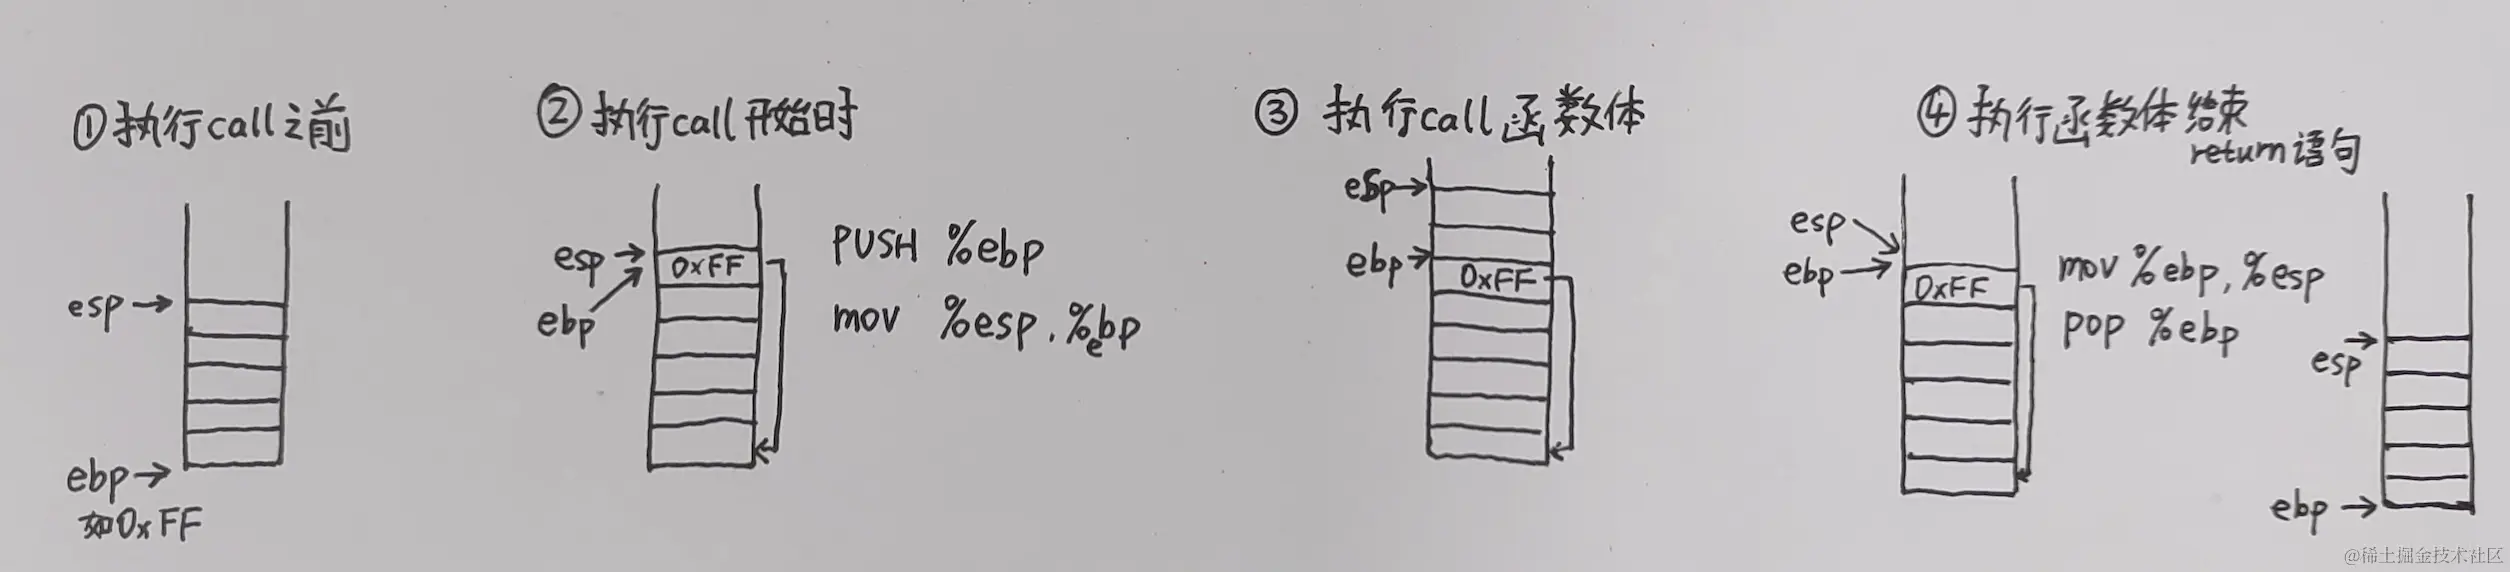 ①执行call之前
esp→
ebp→
如0xFF
②执行call开始时
esp→
ebp
0xFF
PUSH %ebp
mov %esp.%ebp
③执行call函数体
esp→
ebp→
0xFF
④执行函数体结束
return语句
esp
ebp→
0xFF
mov %ebp,%esp
pop %ebp
esp
ebp→
@稀土掘金技术社区